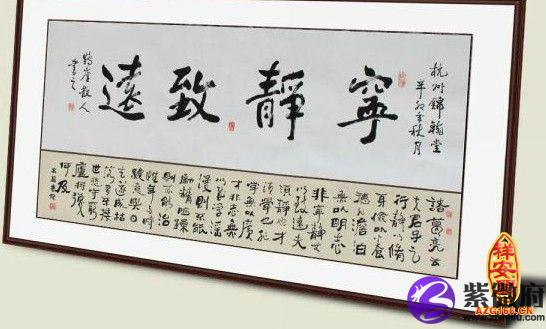 寧靜致遠
杭州錦翰堂
辛卯年秋月
散人
書之
諸葛亮
夫君子之
行靜以脩
身儉以養
德非澹泊
無以明志
非寧靜無
以致遠夫
須靜也才
須學也非
學無以廣
才非志無
以成學淫
慢則不能
勵精險躁
則不能治
性年與時
馳意與日
去遂成枯
落多不接
世悲守窮
廬將復
何及
祥安阁
紫微府
AZG168.CN